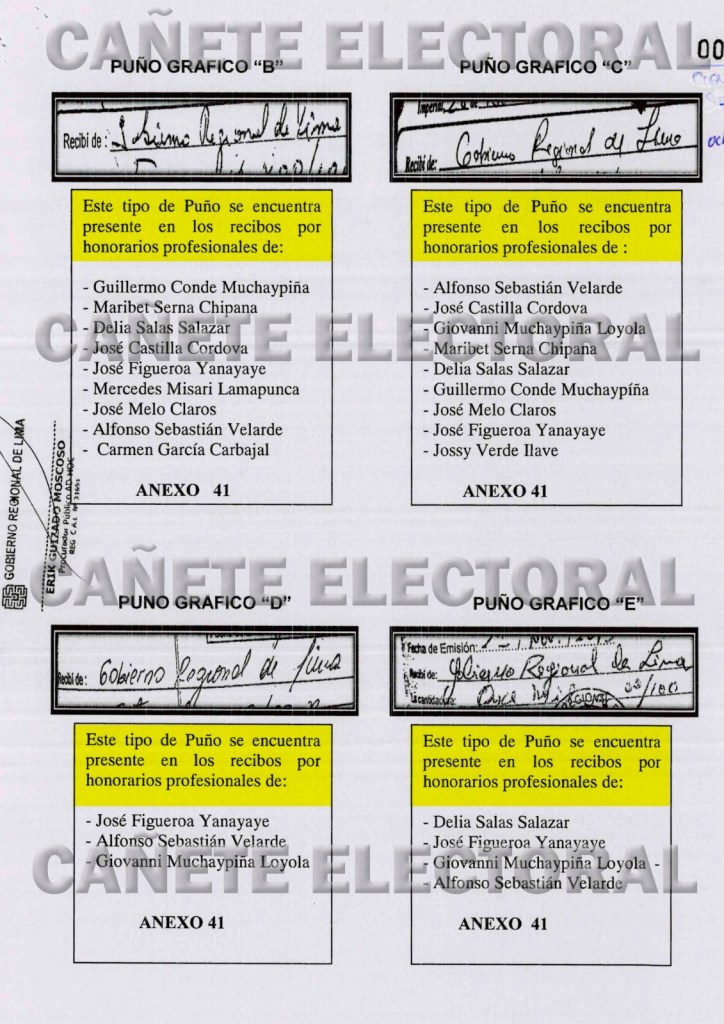 CAÑETE ELECTORAL
00
PUÑO GRAFICO “B”
Recibí de : Gobierno Regional de Lima
Este tipo de Puño se encuentra
presente en los recibos por
honorarios profesionales de:
- Guillermo Conde Muchaypiña
- Maribet Serna Chipana
- Delia Salas Salazar
- José Castilla Cordova
- José Figueroa Yanayaye
- Mercedes Misari Lamapunca
- José Melo Claros
- Alfonso Sebastián Velarde
- Carmen García Carbajal
ANEXO 41
PUÑO GRAFICO “C”
Imperial,
Recibí de: Gobierno Regional de Lima
Este tipo de Puño se encuentra
presente en los recibos por
honorarios profesionales de :
- Alfonso Sebastián Velarde
- José Castilla Cordova
- Giovanni Muchaypiña Loyola
- Maribet Serna Chipana
- Delia Salas Salazar
- Guillermo Conde Muchaypíña
- José Melo Claros
- José Figueroa Yanayaye
- Jossy Verde Ilave
ANEXO 41
CAÑETE ELECTORAL
GOBIERNO REGIONAL DE LIMA
ERIK GUIZADO MOSCOSO
Procurador Público AD-HOC
REG. C.A.L. Nº
CAÑETE ELECTORAL
PUNO GRAFICO “D”
Recibí de : Gobierno Regional de Lima
Este tipo de Puño se encuentra
presente en los recibos por
honorarios profesionales de:
- José Figueroa Yanayaye
- Alfonso Sebastián Velarde
- Giovanni Muchaypiña Loyola
ANEXO 41
PUÑO GRAFICO “E”
Fecha de Emisión:
Recibí de: Gobierno Regional de Lima
La cantidad de: Once Mil 00/100
REGIONAL
Este tipo de Puño se encuentra
presente en los recibos por
honorarios profesionales de:
- Delia Salas Salazar
- José Figueroa Yanayaye
- Giovanni Muchaypiña Loyola -
- Alfonso Sebastián Velarde
ANEXO 41
CAÑETE ELECTORAL